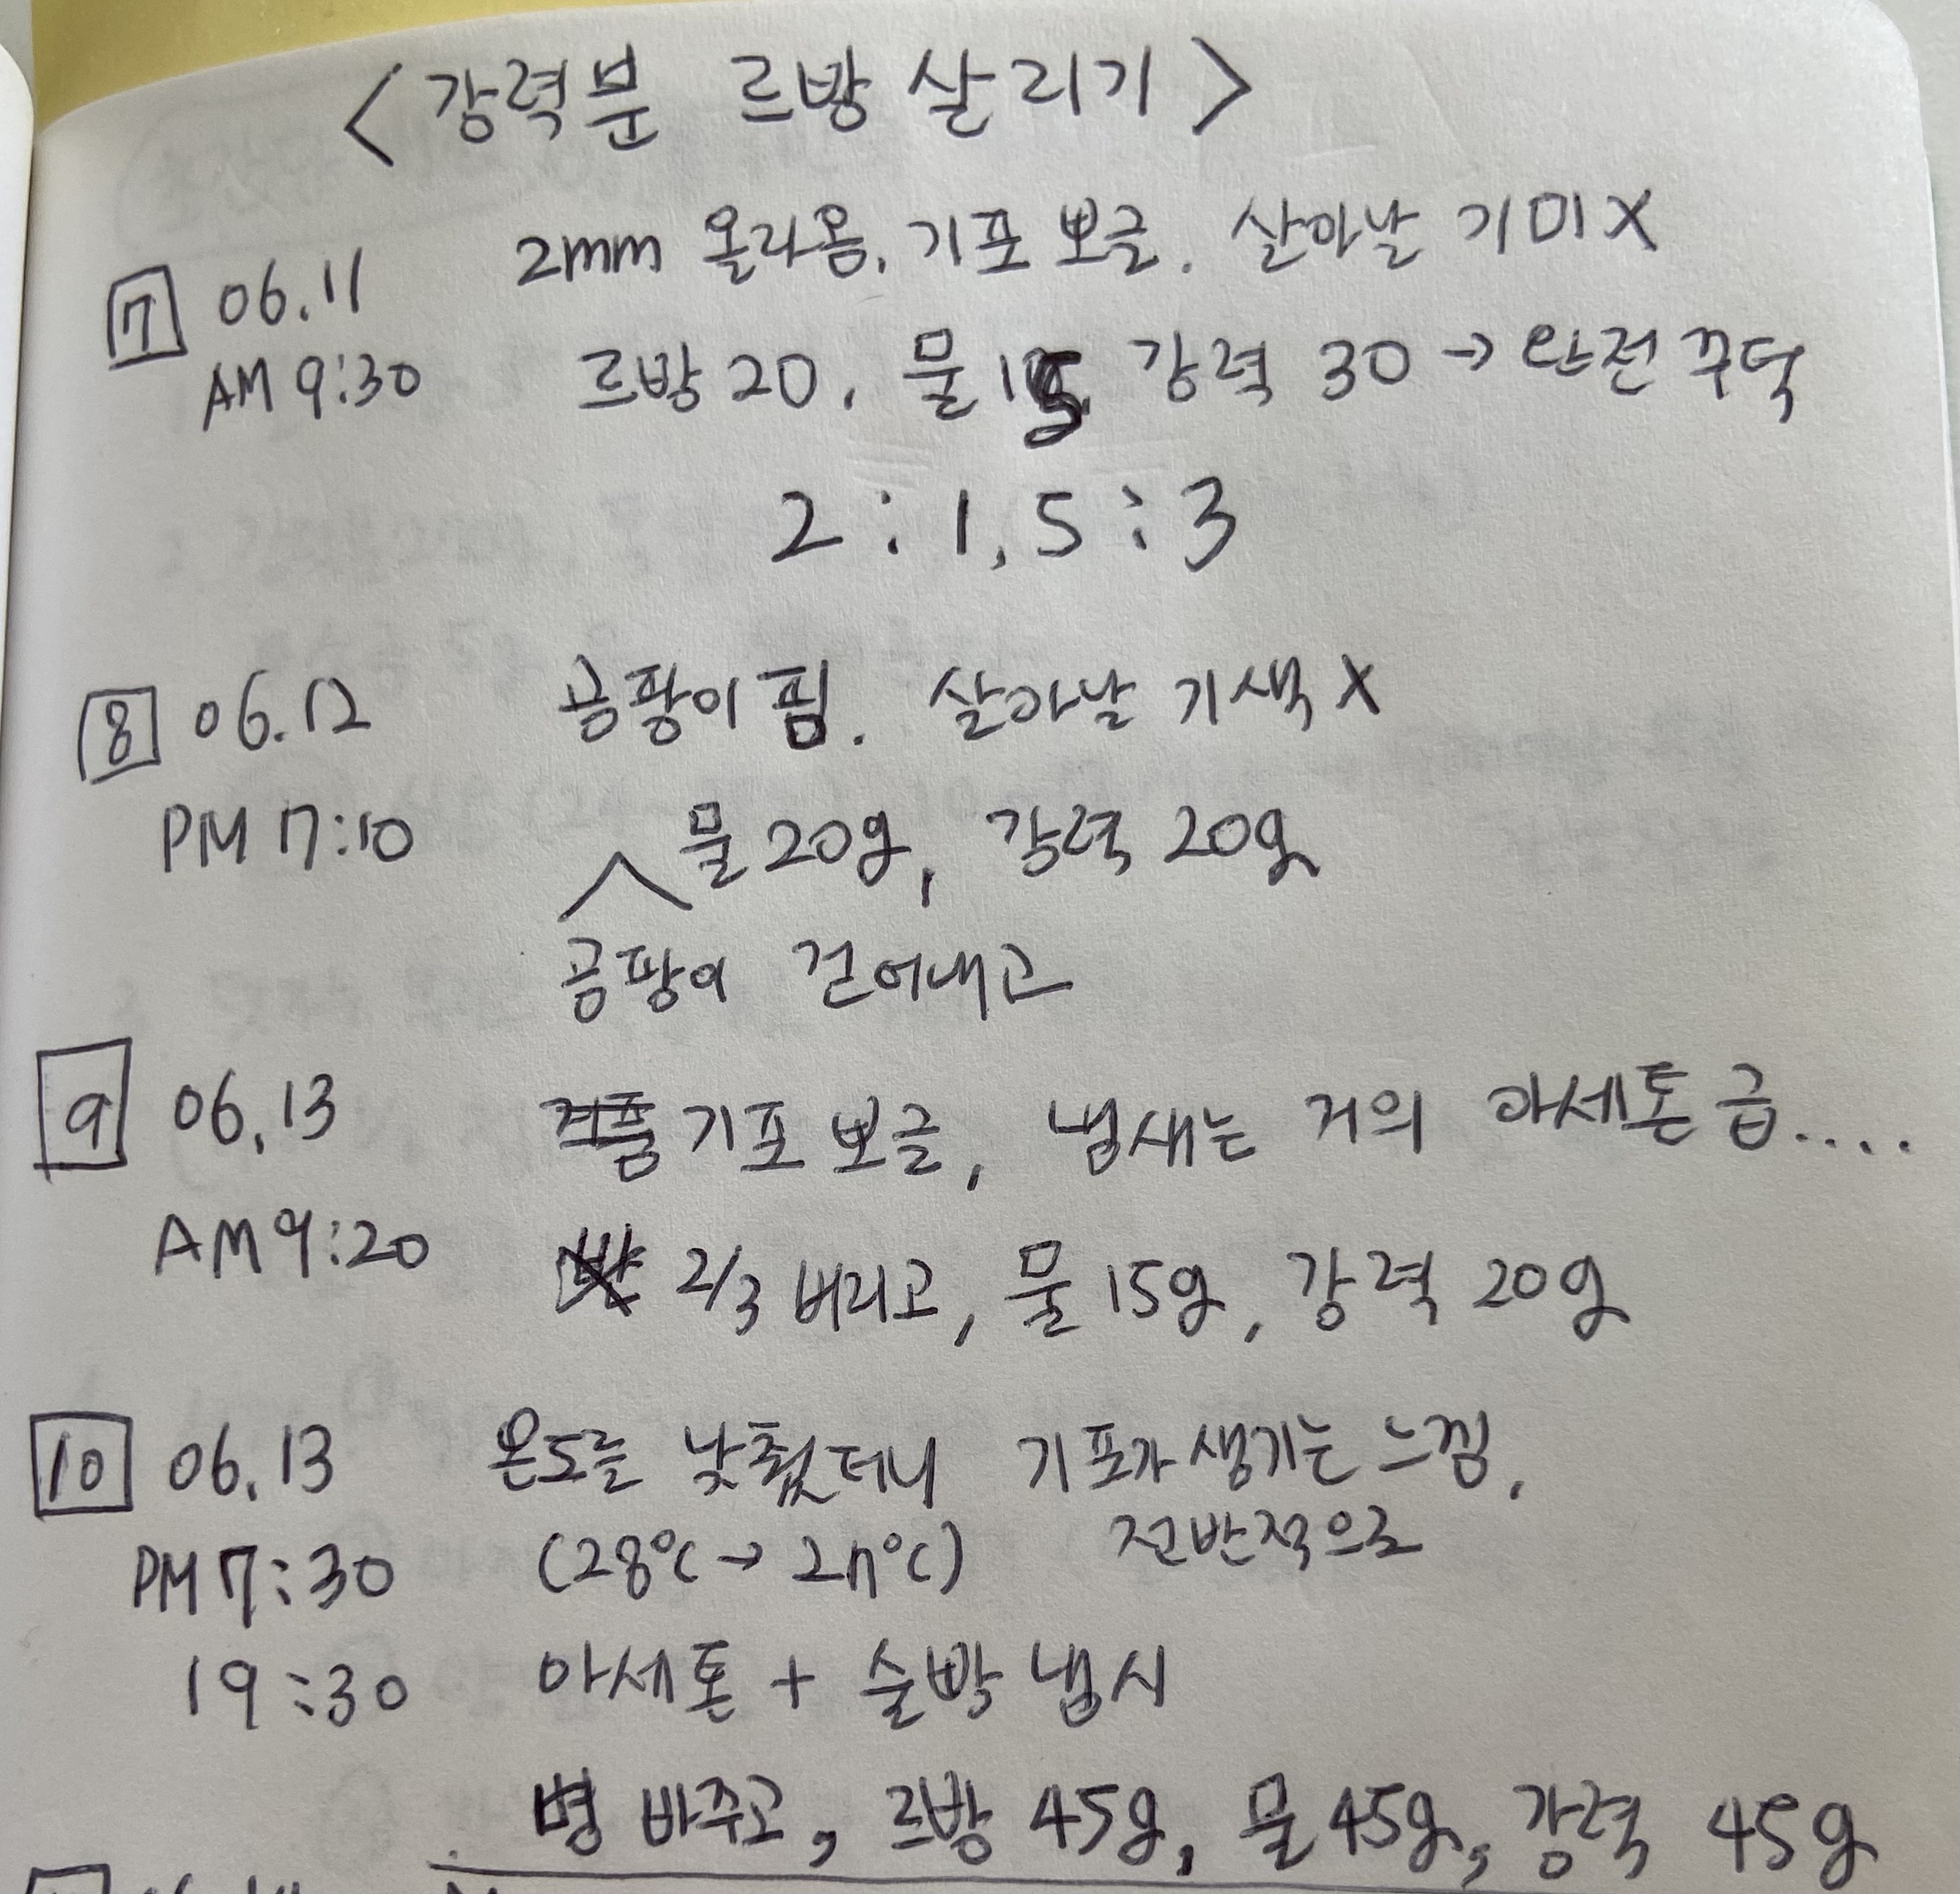 <강력분 르방 살리기>
2mm 올라옴. 기포 뽀글. 살아날 기미 X
7 06.11
AM 9:30 르방 20, 물 15 강력 30 → 완전 꾸덕
2 : 1.5 : 3
8 06.12 곰팡이 핌. 살아날 기색 X
PM 7:10 물 20g, 강력 20g
곰팡이 걷어내고
9 06.13 기포 뽀글, 냄새는 거의 아세톤 급....
AM 9:20 2/3 버리고, 물 15g, 강력 20g
10 06.13 온도를 낮췄더니 기포가 생기는 느낌,
PM 7:30 (28℃ → 27℃) 전반적으로
19:30 아세톤 + 술빡 냄시
병 바주고, 르방 45g, 물 45g, 강력 45g